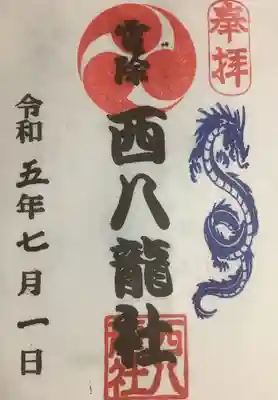 奉拝
雷除
西八龍社
西八龍社
令和五年七月一日